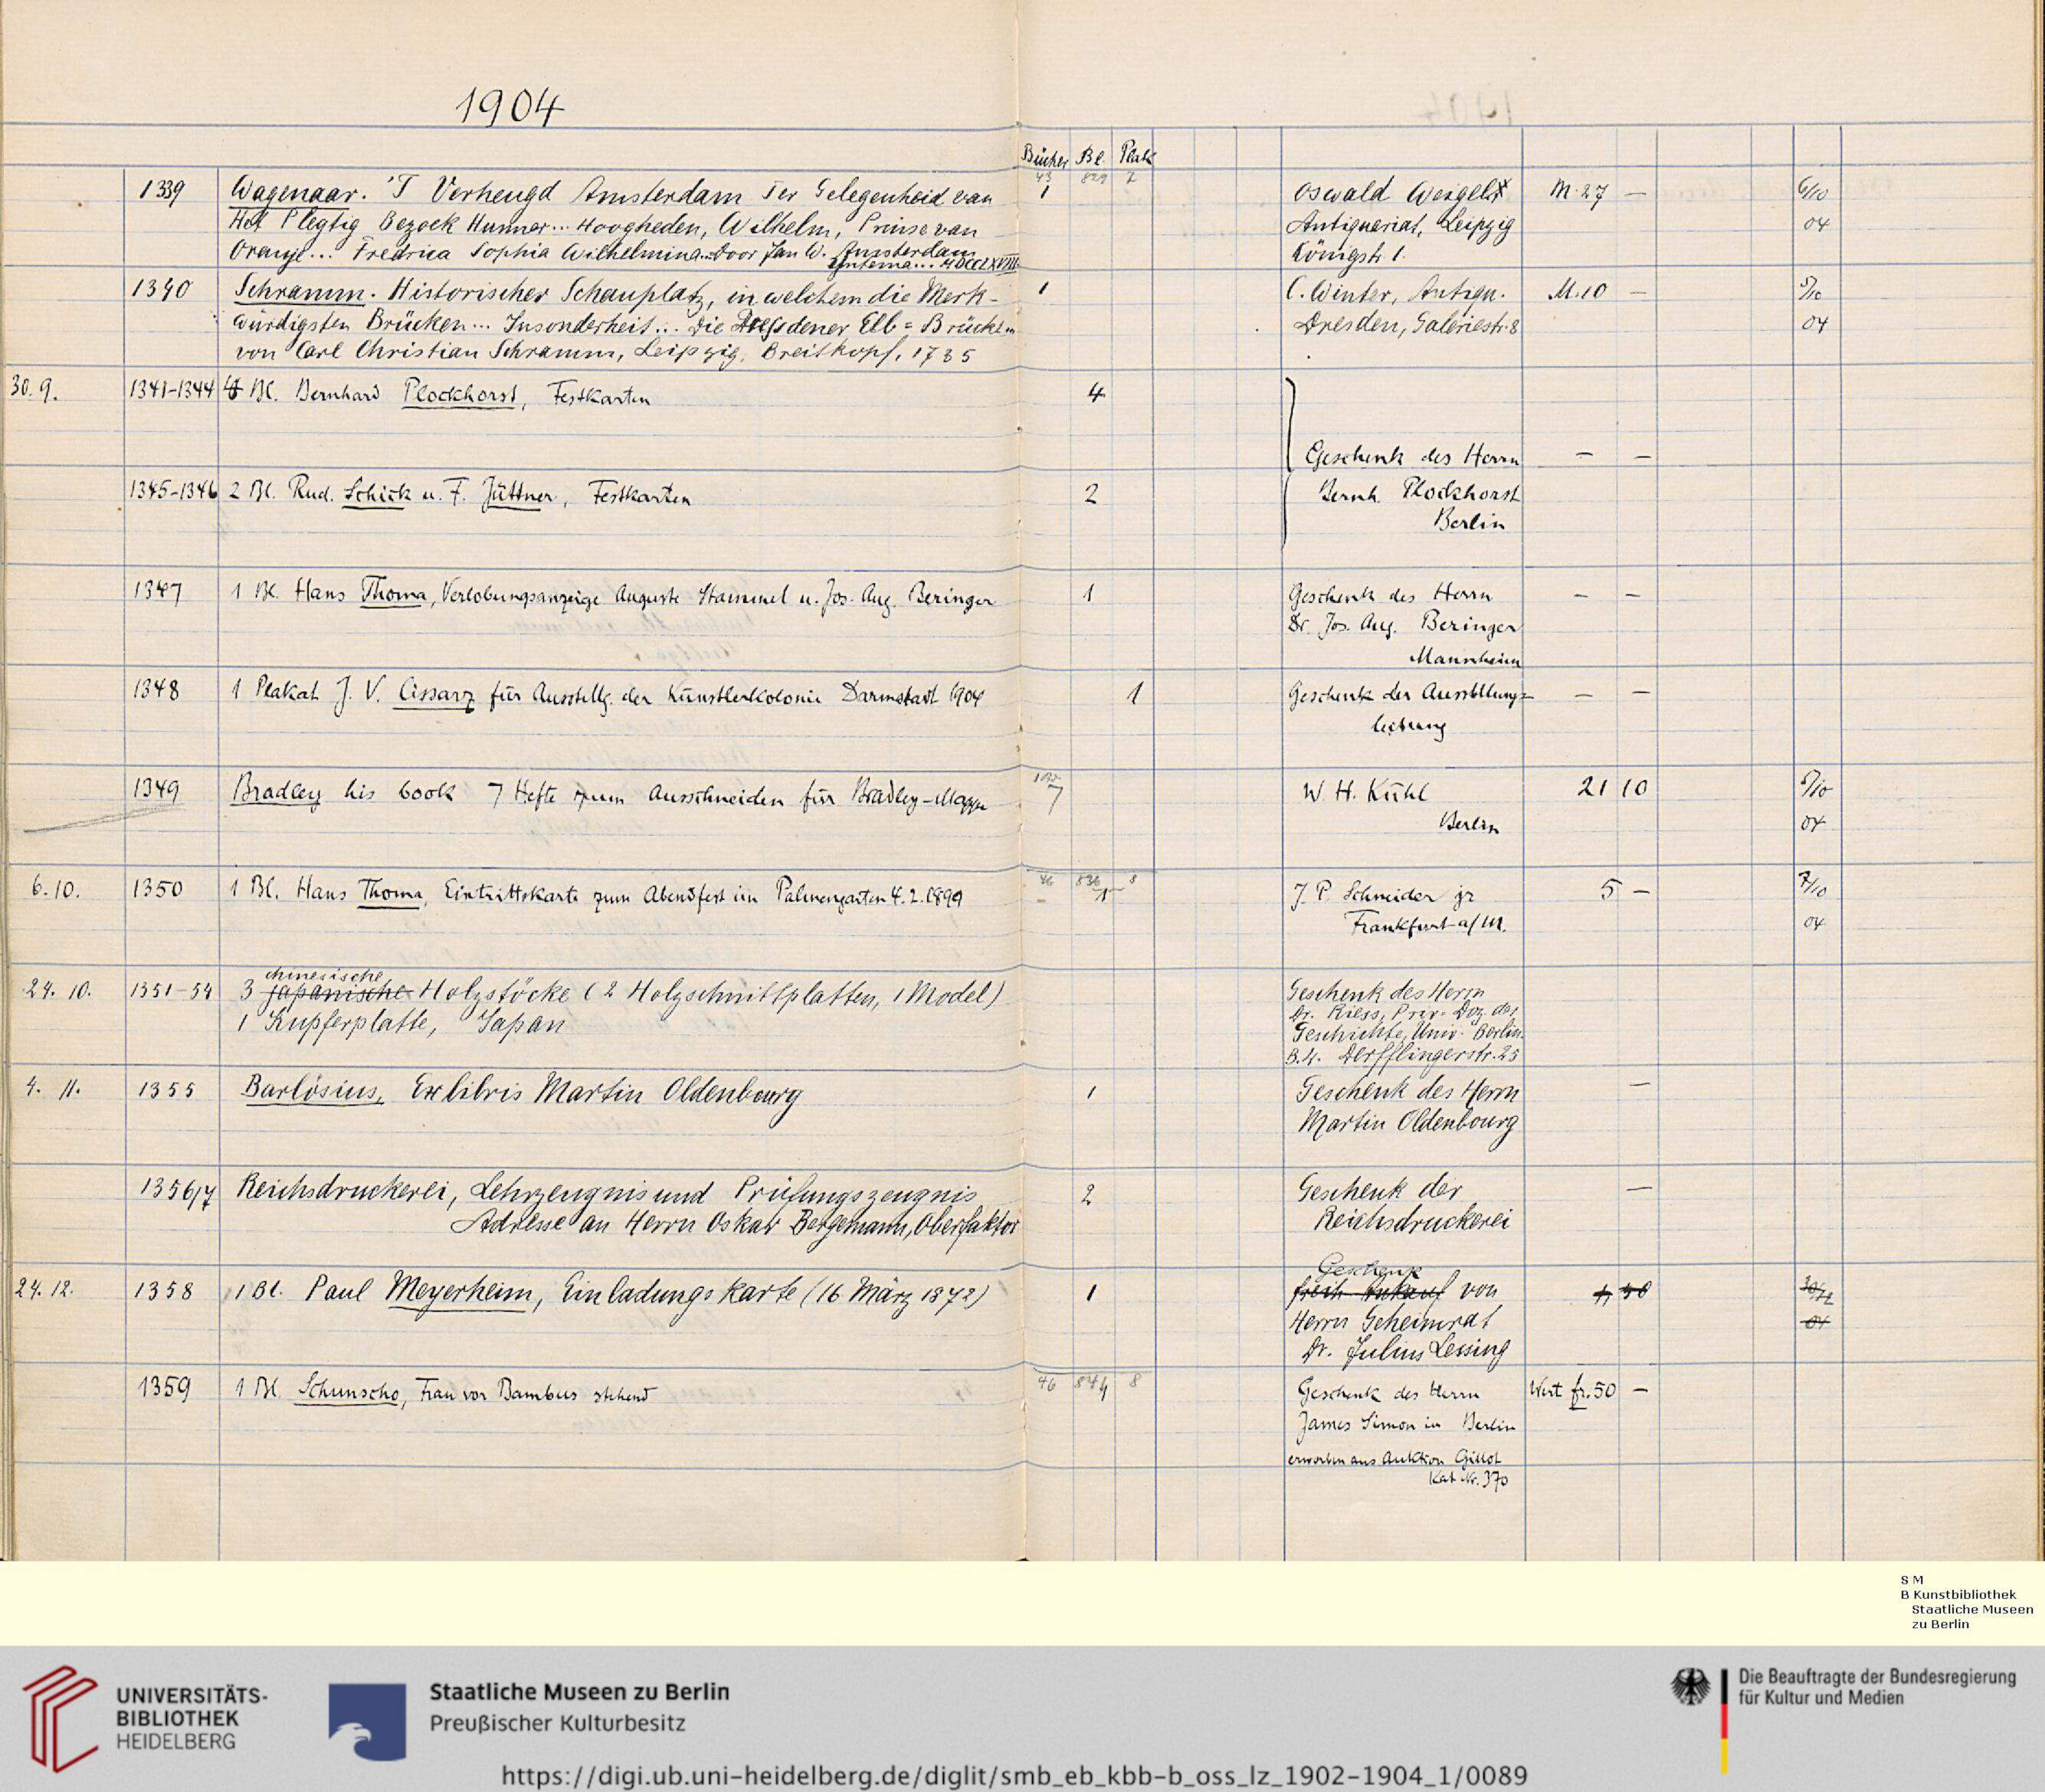 1904
Bücher Bl. Plak
43 829 7
1339 Wagenaar. 'T Verheugd Amsterdam Ter Gelegenheid van 1 Oswald Weigelt M. 27 — 6/10
Het Plegtig Bezoek Hunner... Hoogheden, Wilhelm, Prinse van Antiquariat, Leipzig 04
Oranje... Fredrica Sophia Wilhelmina... Door Jan W. Amsterdam Königstr 1.
Yntema... MDCCLXVIII
1340 Schramm. Historischer Schauplatz, in welchem die Merk- 1 C. Winter, Antiqu. M. 10 — 5/10
würdigsten Brücken... Insonderheit... Die Dresdener Elb=Brücken Dresden, Galeriestr. 8 04
von Carl Christian Schramm, Leipzig, Breitkopf, 1735
30. 9. 1341-1344 4 Bl. Bernhard Plockhorst, Festkarten 4
Geschenk des Herrn — —
1345-1346 2 Bl. Rud. Schick u. F. Jüttner, Festkarten 2 Bernh. Plockhorst
Berlin
1347 1 Bl. Hans Thoma, Verlobungsanzeige Auguste Stammel u. Jos. Aug. Beringer 1 Geschenk des Herrn — —
Dr. Jos. Aug. Beringer
Mannheim
1348 1 Plakat J. V. Cissarz für Ausstellg. der Künstlerkolonie Darmstadt 1904 1 Geschenk der Ausstellungs= — —
leitung
1349 Bradley his book 7 Hefte zum Ausschneiden für Bradley-Mappe 7 W. H. Kühl 21 10 5/10
Berlin 04
46 836 8
6. 10. 1350 1 Bl. Hans Thoma, Eintrittskarte zum Abendfest im Palmengarten 4. 2. 1899 1 J. P. Schneider jr 5 — 7/10
Frankfurt a/M. 04
chinesische
24. 10. 1351-54 3 japanische Holzstöcke (2 Holzschnittplatten, 1 Model) Geschenk des Herrn
1 Kupferplatte, Japan Dr. Riess, Priv. Doz. der
Geschichte, Univ. Berlin.
B.W. Derfflingerstr. 25
4. 11. 1355 Barlösius, Exlibris Martin Oldenbourg 1 Geschenk des Herrn —
Martin Oldenbourg
1356/7 Reichsdruckerei, Lehrzeugnis und Prüfungszeugnis 2 Geschenk der —
Adresse an Herrn Oskar Bergemann, Oberfaktor Reichsdruckerei
Geschenk
24. 12. 1358 1 Bl. Paul Meyerheim, Einladungskarte (16. März 1872) 1 freih. Ankauf von 1, 50 30/12
Herrn Geheimrat 04
Dr. Julius Lessing
46 844 8
1359 1 Bl. Schunscho, Frau vor Bambus stehend Geschenk des Herrn Wert fr. 50 —
James Simon in Berlin
erworben aus Auktion Gillot
Kat. Nr. 370
S M
B Kunstbibliothek
Staatliche Museen
zu Berlin
UNIVERSITÄTS-
BIBLIOTHEK
HEIDELBERG
Staatliche Museen zu Berlin
Preußischer Kulturbesitz
Die Beauftragte der Bundesregierung
für Kultur und Medien
https://digi.ub.uni-heidelberg.de/diglit/smb_eb_kbb-b_oss_lz_1902-1904_1/0089